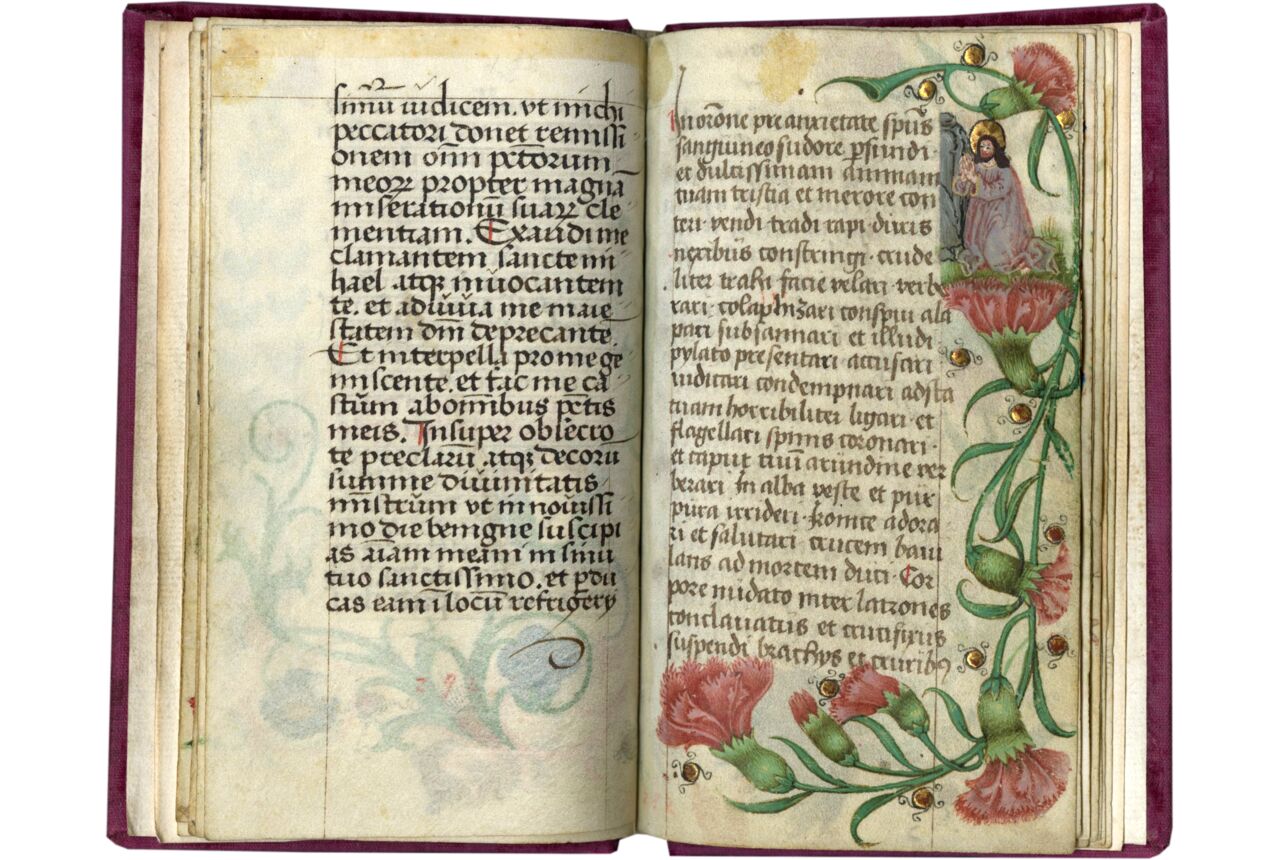 simū iudicem. vt michi
peccatori donet remissi
onem omī pctōrum
meoꝝ propter magnā
miserationū suaꝝ cle
mentiam. Exaudi me
clamantem sancte mi
hael atqꝫ inuocantem
te. et adiuua me maie
statem dn̄i deprecante
Et interpella pro me ge
miscente. et fac me ca
stum ab om̄ibus pctīs
meis. Insuper obsecro
te preclarū atqꝫ decorū
summe diuinitatis
ministrum vt in nouissi
mo die benigne suscipi
as aīam meam in sinu
tuo sanctissimo. et pdu
cas eam ī locū refrigerij
In orōne pre anxietate spūs
sanguineo sudore pfundi·
et dulcissimam animam
tuam tristia et merore con
teri· vendi· tradi· rapi· diris
nexibus constringi· crude
liter trahi· facie velari· verbe
rari· colaphizari conspui ala
pari subsannari et illudi·
pylato presentari· accusari
iudicari condempnari ad sta
tuam horribiliter ligari· et
flagellari spinis coronari·
et caput tuū arundine ver
berari In alba veste et pur
pura irrideri· ficute adora
ri et salutari· crucem baiu
lans ad mortem duci· Cor
pore nudato inter latrones
conclauatus et crucifixus
suspendi brachijs et crurib9